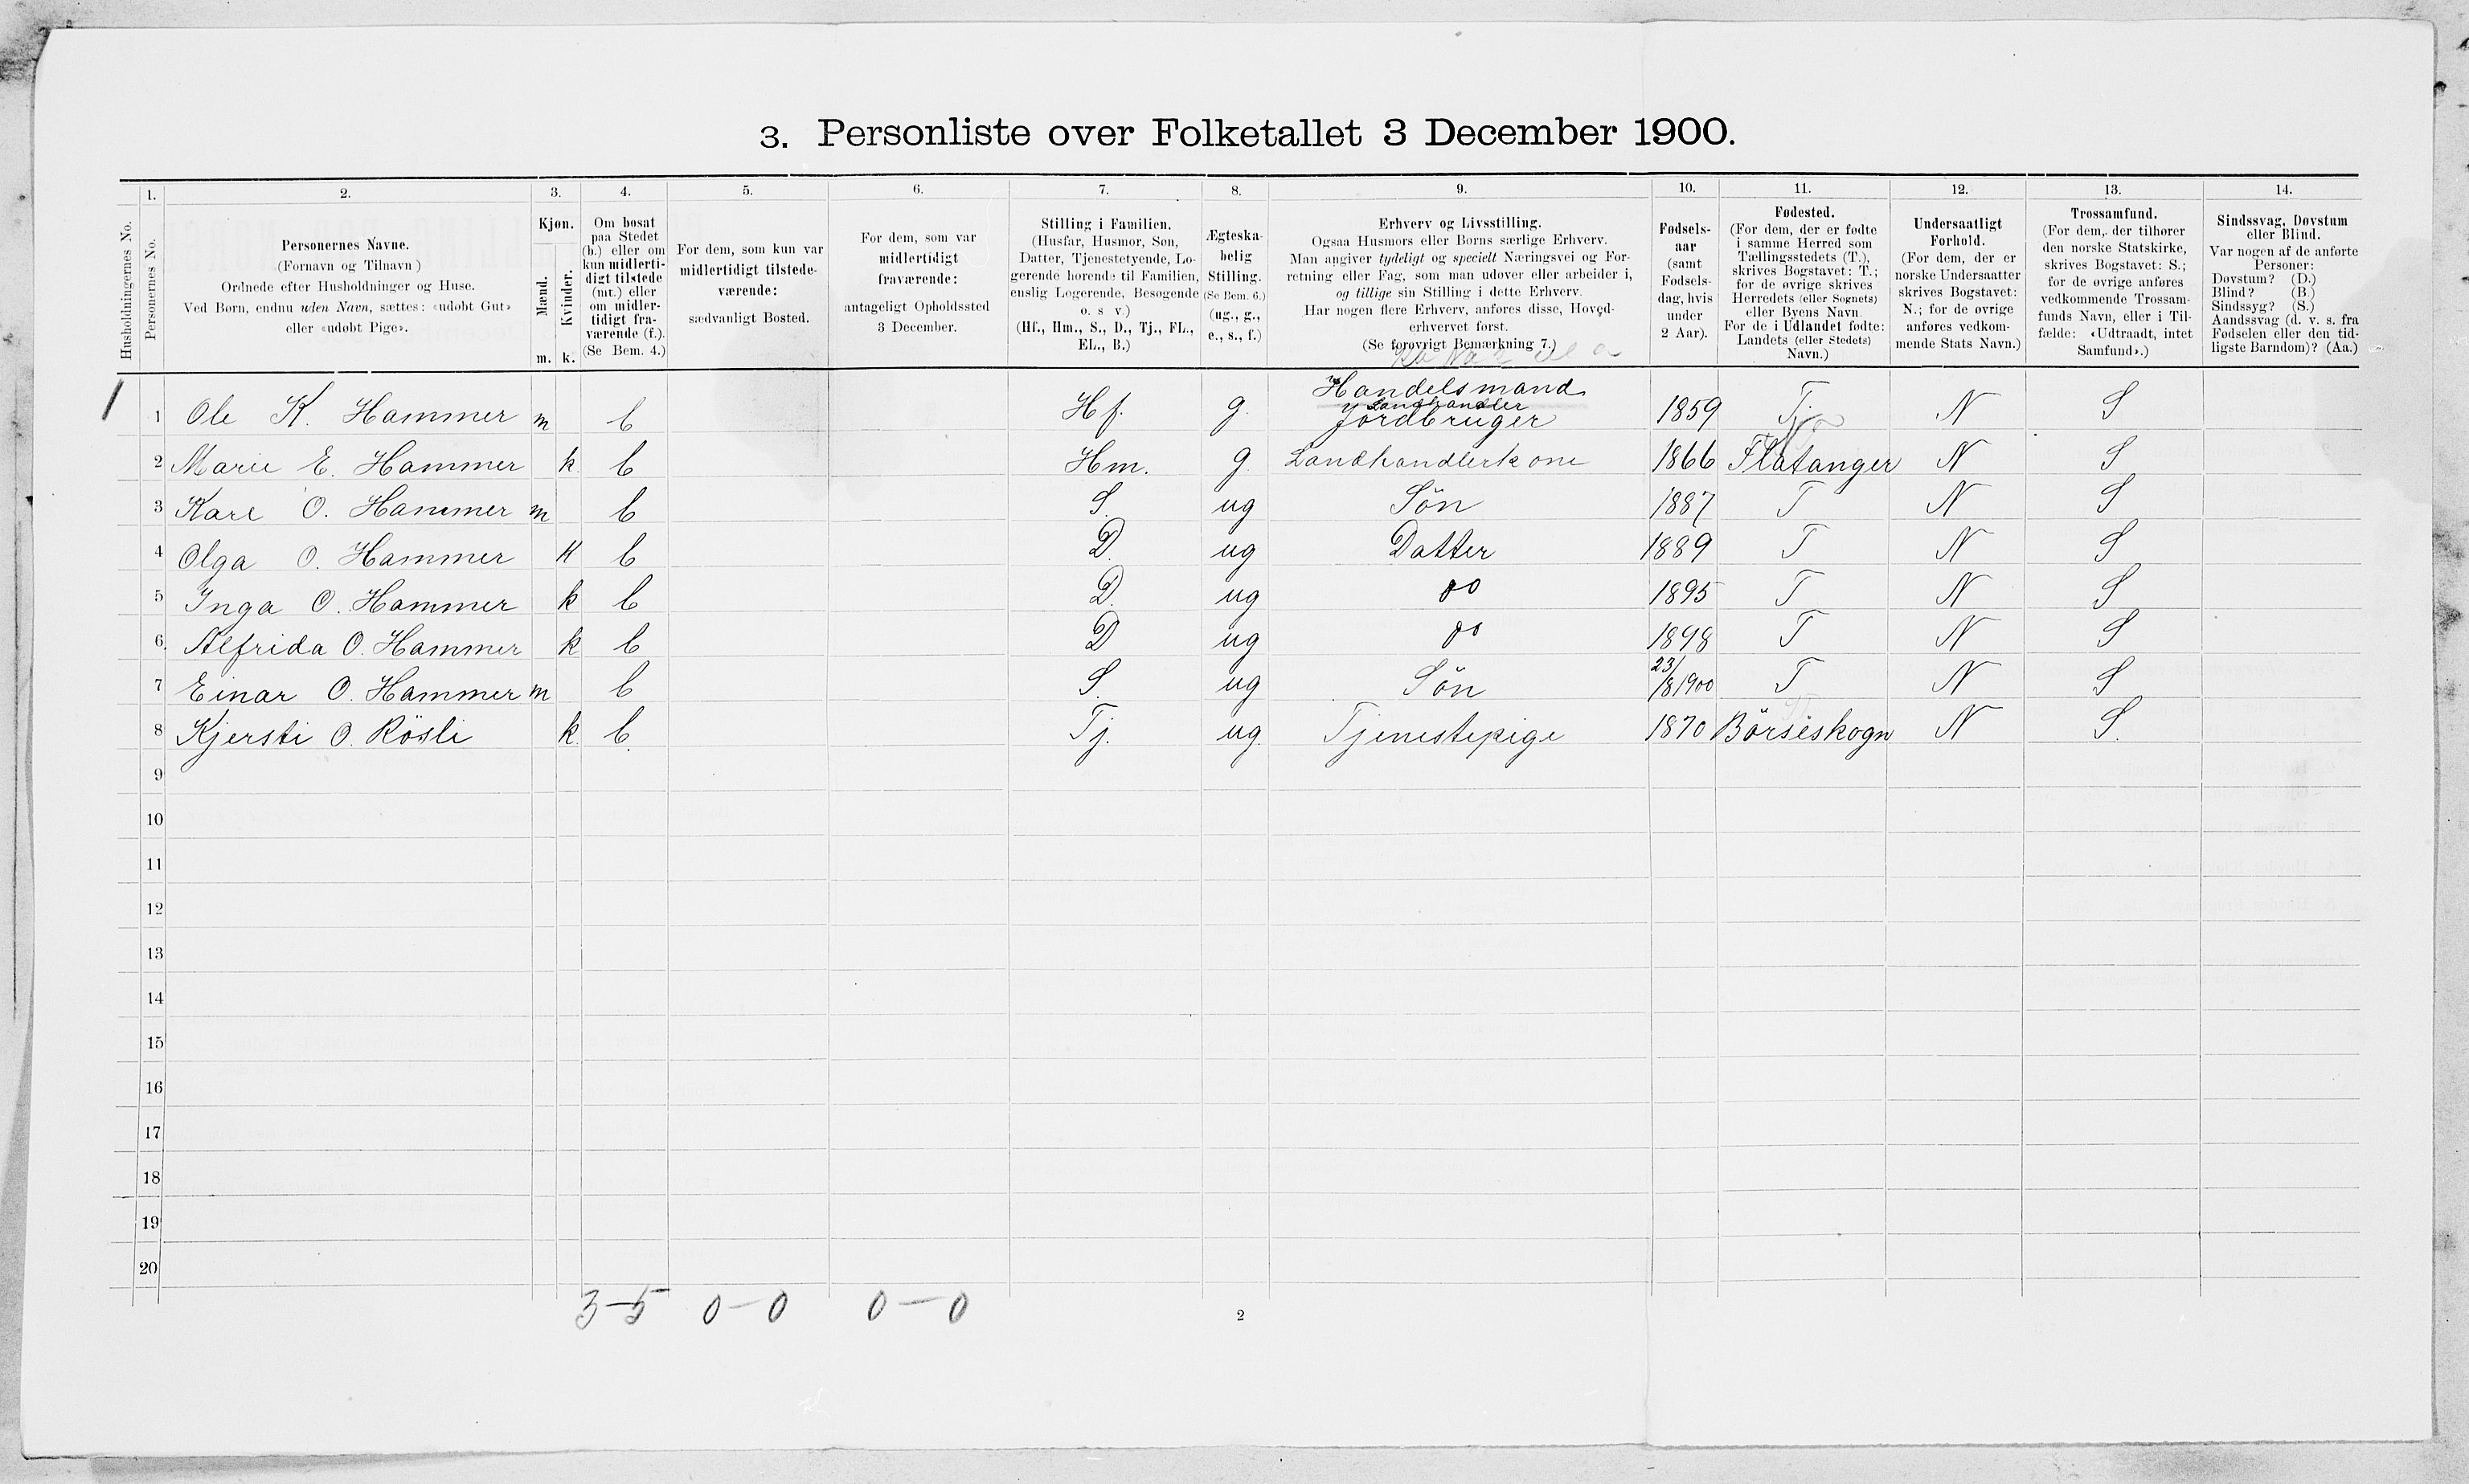 3. Personliste over Folketallet 3 December 1900.
1. 2. 3. 4. 5. 6. 7. 8. 9. 10. 11. 12. 13. 14.
Husholdningernes No.
Personernes No.
Personernes Navne.
(Fornavn og Tilnavn)
Ordnede efter Husholdninger og Huse.
Ved Børn, endnu uden Navn, sættes: «udøbt Gut»
eller «udøbt Pige».
Kjøn.
Mænd.
Kvinder.
m. k.
Om bosat
paa Stedet
(b.) eller om
kun midlerti-
digt tilstede
(mt.) eller
om midler-
tidigt fra-
værende (f.).
(Se Bem. 4.)
For dem, som kun var
midlertidigt tilstede-
værende:
sædvanligt Bosted.
For dem, som var
midlertidigt
fraværende:
antageligt Opholdssted
3 December.
Stilling i Familien.
(Husfar, Husmor, Søn,
Datter, Tjenestetyende, Lo-
gerende hørende til Familien,
enslig Logerende, Besøgende
o. s v.)
(Hf., Hm., S., D., Tj., FL.,
EL., B.)
Ægteska-
belig
Stilling.
(Se Bem. 6.)
(ug., g.,
e., s., f.)
Erhverv og Livsstilling.
Ogsaa Husmors eller Børns særlige Erhverv.
Man angiver tydeligt og specielt Næringsvei og For-
retning eller Fag, som man udøver eller arbeider i,
og tillige sin Stilling i dette Erhverv.
Har nogen flere Erhverv, anføres disse, Hoved-
erhvervet først.
(Se forøvrigt Bemærkning 7.)
Fødsels-
aar
(samt
Fødsels-
dag, hvis
under
2 Aar).
Fødested.
(For dem, der er fødte
i samme Herred som
Tællingsstedets (T.),
skrives Bogstavet: T.;
for de øvrige skrives
Herredets (eller Sognets)
eller Byens Navn.
For de i Udlandet fødte:
Landets (eller Stedets)
Navn.)
Undersaatligt
Forhold.
(For dem, der er
norske Undersaatter
skrives Bogstavet:
N.; for de øvrige
anføres vedkom-
mende Stats Navn.)
Trossamfund.
(For dem, der tilhører
den norske Statskirke,
skrives Bogstavet: S.;
for de øvrige anføres
vedkommende Trossam-
funds Navn, eller i Til-
fælde: «Udtraadt, intet
Samfund».)
Sindssvag, Døvstum
eller Blind.
Var nogen af de anførte
Personer:
Døvstum? (D.)
Blind? (B.)
Sindssyg? (S.)
Aandssvag (d. v. s. fra
Fødselen eller den tid-
ligste Barndom)? (Aa.)
Handelsmand
Landhandler
1 1 Ole K. Hammer m b Hf. g. Jordbruger 1859 T N S
2 Marie E. Hammer k b Hm. g. Landhandlerkone 1866 Flatanger N S
3 Kare O. Hammer m b S. ug Sön 1887 T N S
4 Olga O. Hammer K b D. ug Datter 1889 T N S
5 Inga O. Hammer k b D. ug do 1895 T N S
6 Alfrida O. Hammer k b D ug do 1898 T N S
7 Einar O. Hammer m b S. ug Sön 23/8 1900 T N S
8 Kjersti O. Rösli k. b. Tj. ug. Tjenestepige 1870 Börseskogn N S.
9
10
11
12
13
14
15
16
17
18
19
20
3-5 0-0 0-0
2